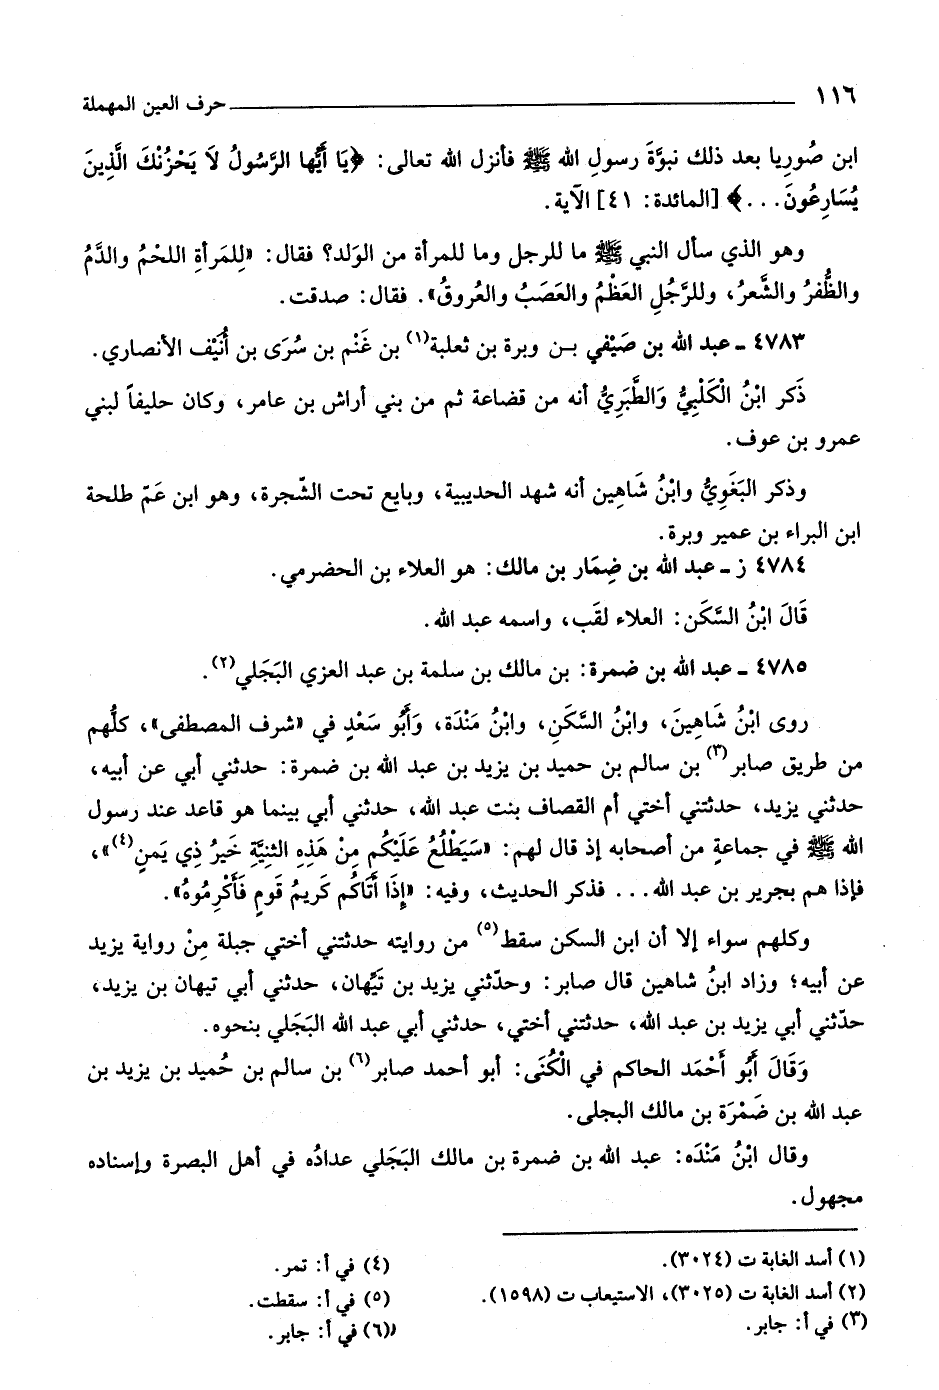 ١١٦ حرف العين المهملة
ابن صُورِيا بعد ذلك نبوَّةَ رسولِ الله ﷺ فأنزل الله تعالى: ﴿يَا أَيُّها الرَّسُولُ لاَ يَحْزُنْكَ الَّذِينَ
يُسَارِعُونَ...﴾ [المائدة: ٤١] الآية.
وهو الذي سأل النبي ﷺ ما للرجل وما للمرأة من الوَلد؟ فقال: «لِلمَرأةِ اللحْمُ والدَّمُ
والظُّفرُ والشَّعرُ، وللرَّجُلِ العَظْمُ والعَصَبُ والعُروقُ». فقال: صدقت.
٤٧٨٣ ـ عبد الله بن صَيْفي بـن وبرة بن ثعلبة(١) بن غَنْم بن سُرَى بن أُنَيْف الأنصاري.
ذَكر ابْنُ الْكَلْبِيُّ وَالطَّبَرِيُّ أنه من قضاعة ثم من بني أراش بن عامر، وكان حليفاً لبني
عمرو بن عوف.
وذكر البَغَوِيُّ وابْنُ شَاهِين أنه شهد الحديبية، وبايع تحت الشّجرة، وهو ابن عَمّ طلحة
ابن البراء بن عمير وبرة.
٤٧٨٤ ز ـ عبد الله بن ضِمَار بن مالك: هو العلاء بن الحضرمي.
قَالَ ابْنُ السَّكَن: العلاء لقَب، واسمه عبد الله.
٤٧٨٥ ـ عبد الله بن ضمرة: بن مالك بن سلمة بن عبد العزي البَجَلي(٢).
روى ابْنُ شَاهِينَ، وابْنُ السَّكَنِ، وابْنُ مَنْدَة، وَأَبُو سَعْدٍ في «شرف المصطفى»، كلُّهم
من طريق صابر(٣) بن سالم بن حميد بن يزيد بن عبد الله بن ضمرة: حدثني أبي عن أبيه،
حدثني يزيد، حدثتني أختي أم القصاف بنت عبد الله، حدثني أبي بينما هو قاعد عند رسول
الله ﷺ في جماعةٍ من أصحابه إذ قال لهم: «سَيَطْلُعُ عَلَيْكُم مِنْ هَذِهِ الثنِيَّةِ خَيرُ ذِي يَمنٍ(٤)»،
فإذا هم بجرير بن عبد الله... فذكر الحديث، وفيه: «إِذَا أَتَاكُم كَرِيمُ قَومٍ فَأَكْرِمُوهُ».
وكلهم سواء إلا أن ابن السكن سقط(٥) من روايته حدثتني أختي جبلة مِنْ رواية يزيد
عن أبيه؛ وزاد ابنُ شاهين قال صابر: وحدّثني يزيد بن تَيِّهان، حدثني أبي تيهان بن يزيد،
حدّثني أبي يزيد بن عبد الله، حدثتني أختي، حدثني أبي عبد الله البَجَلي بنحوه.
وَقَالَ أَبُو أَحْمَد الحاكم في الْكُنَى: أبو أحمد صابر(٦) بن سالم بن حُميد بن يزيد بن
عبد الله بن ضَمْرَة بن مالك البجلى.
وقال ابْنُ مَنْدَه: عبد الله بن ضمرة بن مالك البَجَلي عدادُه في أهل البصرة وإسناده
مجهول.
(١) أسد الغابة ت (٣٠٢٤).
(٢) أسد الغابة ت (٣٠٢٥)، الاستيعاب ت (١٥٩٨).
(٣) في أ: جابر.
(٤) في أ: تمر.
(٥) في أ: سقطت.
(٦) في أ: جابر.